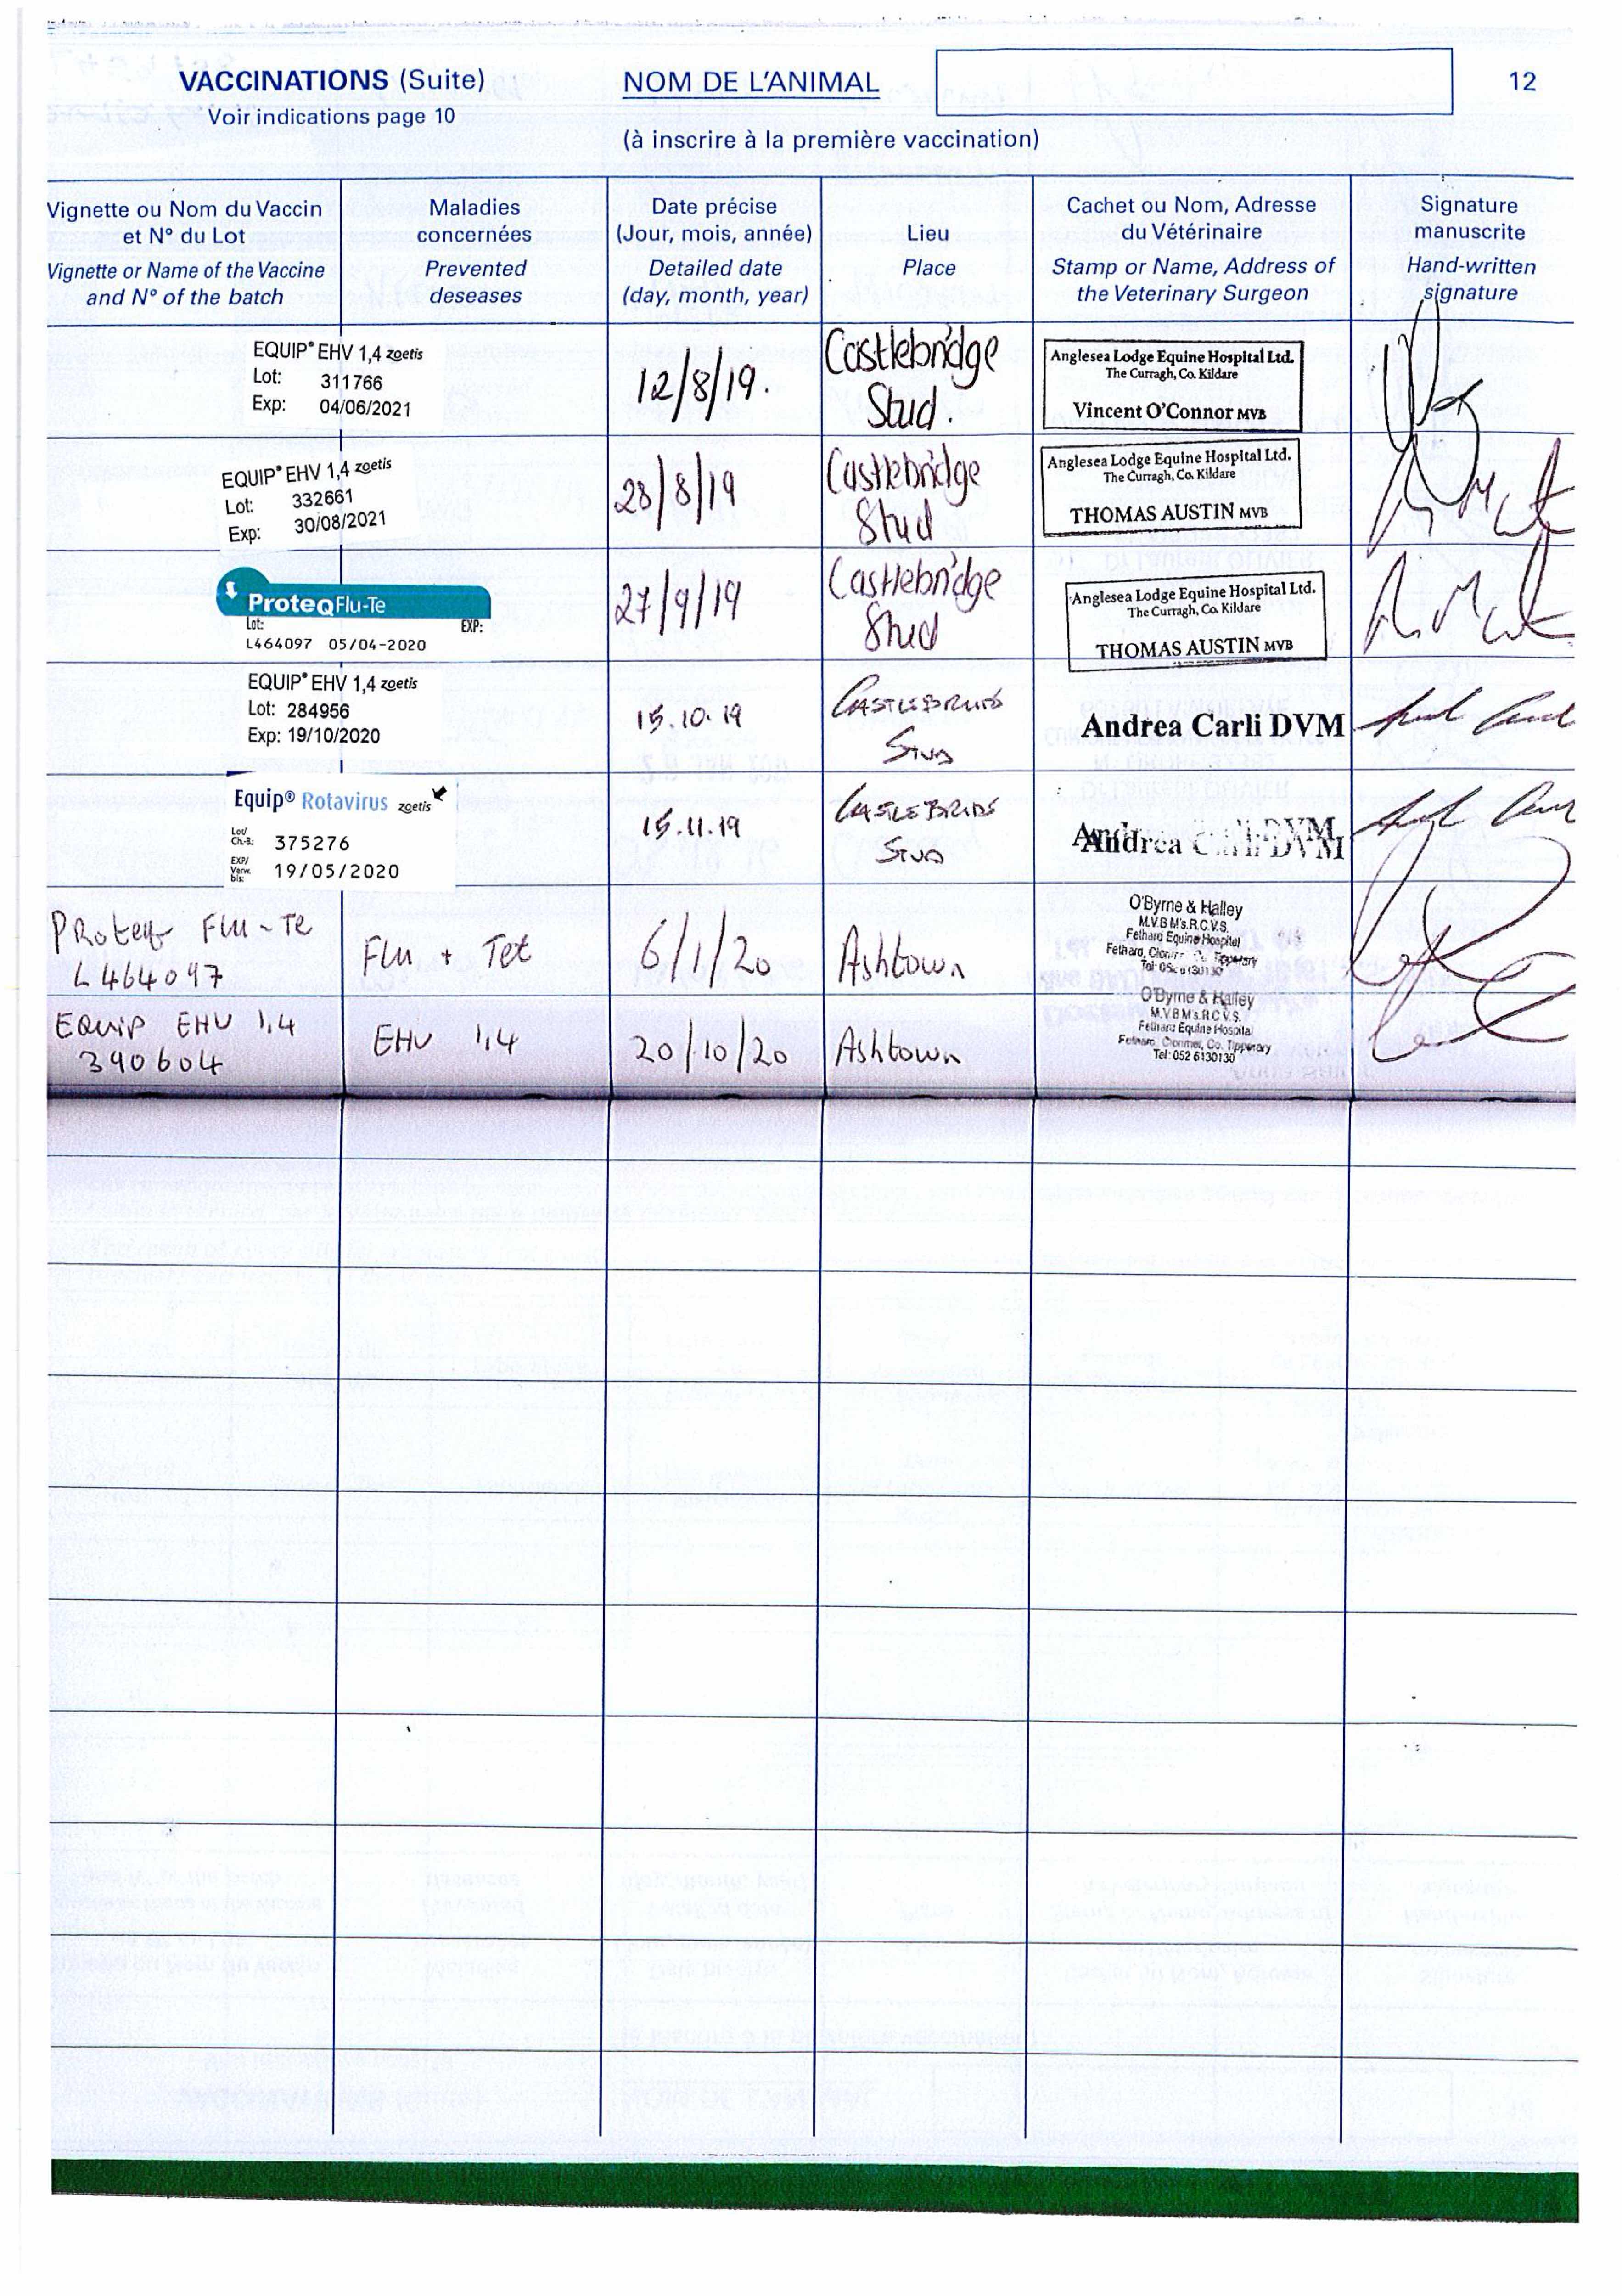 VACCINATIONS (Suite)
Voir indications page 10
NOM DE L'ANIMAL
(à inscrire à la première vaccination)
12
Vignette ou Nom du Vaccin
et N° du Lot
Vignette or Name of the Vaccine
and N° of the batch
Maladies
concernées
Prevented
deseases
Date précise
(Jour, mois, année)
Detailed date
(day, month, year)
Lieu
Place
Cachet ou Nom, Adresse
du Vétérinaire
Stamp or Name, Address of
the Veterinary Surgeon
Signature
manuscrite
Hand-written
signature
EQUIP® EHV 1,4 zoetis
Lot: 311766
Exp: 04/06/2021
12/8/19.
Castlebridge
Stud.
Anglesea Lodge Equine Hospital Ltd.
The Curragh, Co. Kildare
Vincent O'Connor MVB
EQUIP® EHV 1,4 zoetis
Lot: 332661
Exp: 30/08/2021
28/8/19
Castlebridge
Stud
Anglesea Lodge Equine Hospital Ltd.
The Curragh, Co. Kildare
THOMAS AUSTIN MVB
ProteqFlu-Te
Lot: EXP:
L464097 05/04-2020
27/9/19
Castlebridge
Stud
Anglesea Lodge Equine Hospital Ltd.
The Curragh, Co. Kildare
THOMAS AUSTIN MVB
EQUIP® EHV 1,4 zoetis
Lot: 284956
Exp: 19/10/2020
15.10.19
Stud
Andrea Carli DVM
Equip® Rotavirus zoetis
Lot/
Ch.-B.: 375276
EXP/
Verw.
bis: 19/05/2020
15.11.19
Stud
Andrea Carli DVM
Proteq Flu-Te
L464097
Flu + Tet
6/1/20
Ashtown
O'Byrne & Halley
M.V.B M's.R.C.V.S.
Fethard Equine Hospital
Fethard, Tipperary
EQUIP EHV 1,4
390604
EHV 1,4
20/10/20
Ashtown
O'Byrne & Halley
M.V.B M's.R.C.V.S.
Fethard Equine Hospital
Fethard, Clonmel, Co. Tipperary
Tel: 052 6130130